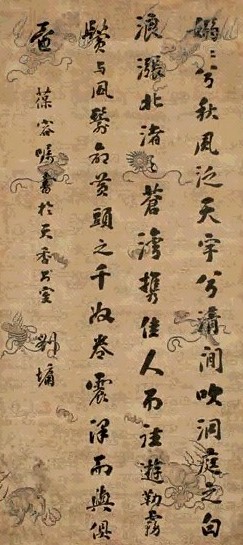 嫋〻兮秋風泛天宇兮清間吹洞庭之白
浪漲北渚之蒼灣攜佳人而往遊勒霧
鬢与風鬟命黃頭之千奴卷震澤而與俱
還
葆容囑書於天香書室 劉墉